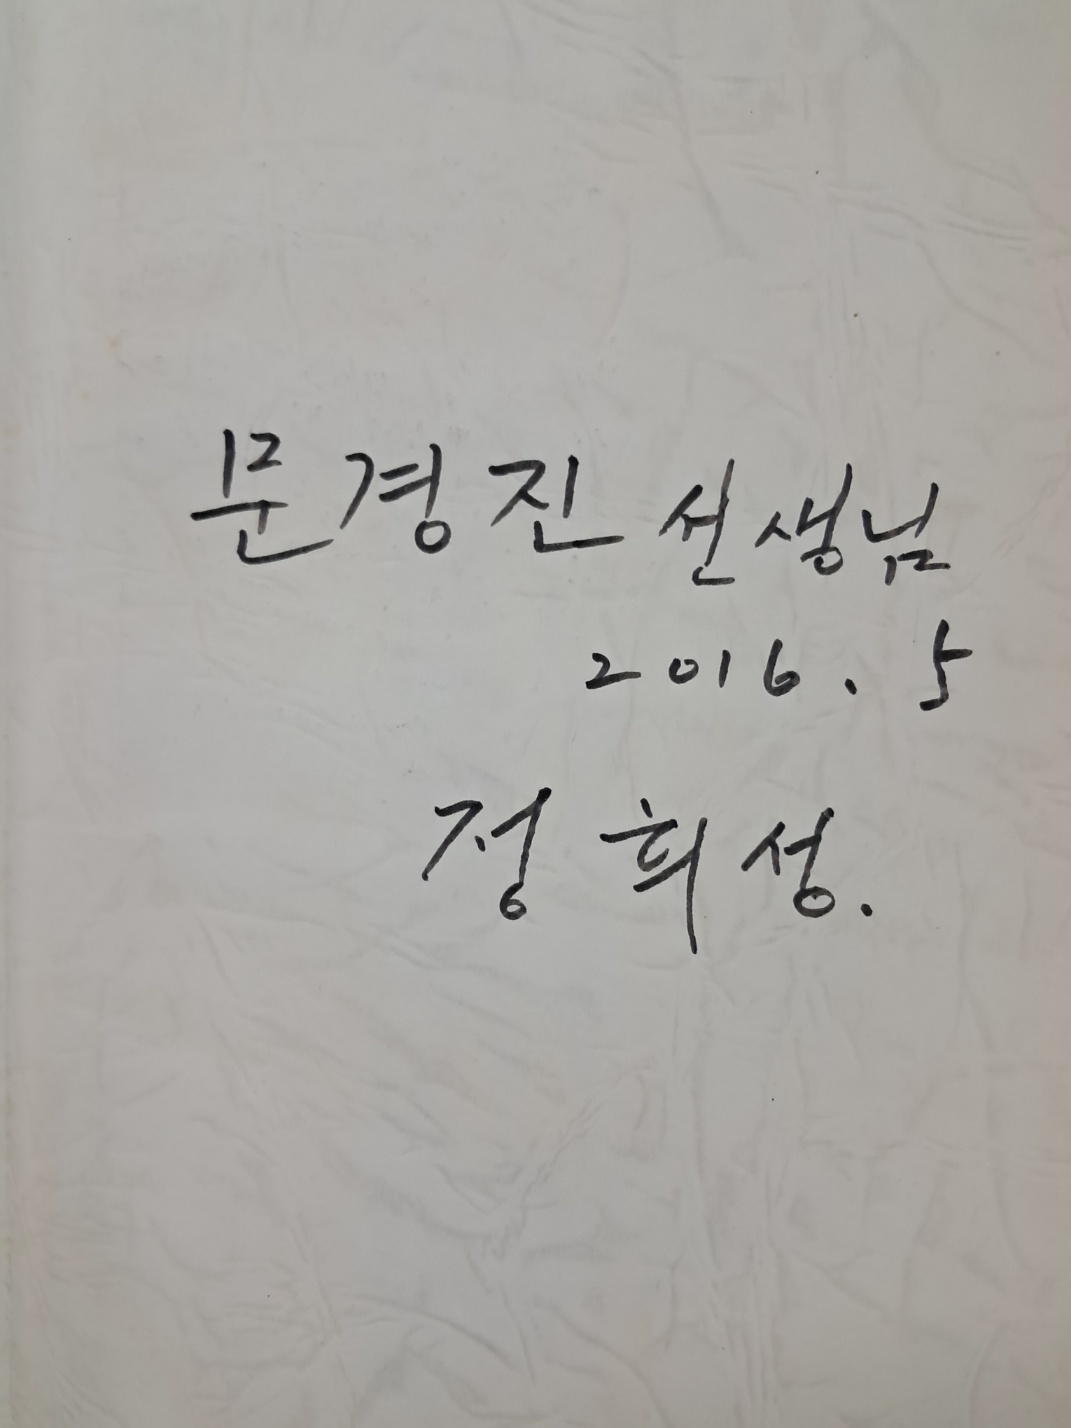 문경진 선생님
2016. 5
정희성.